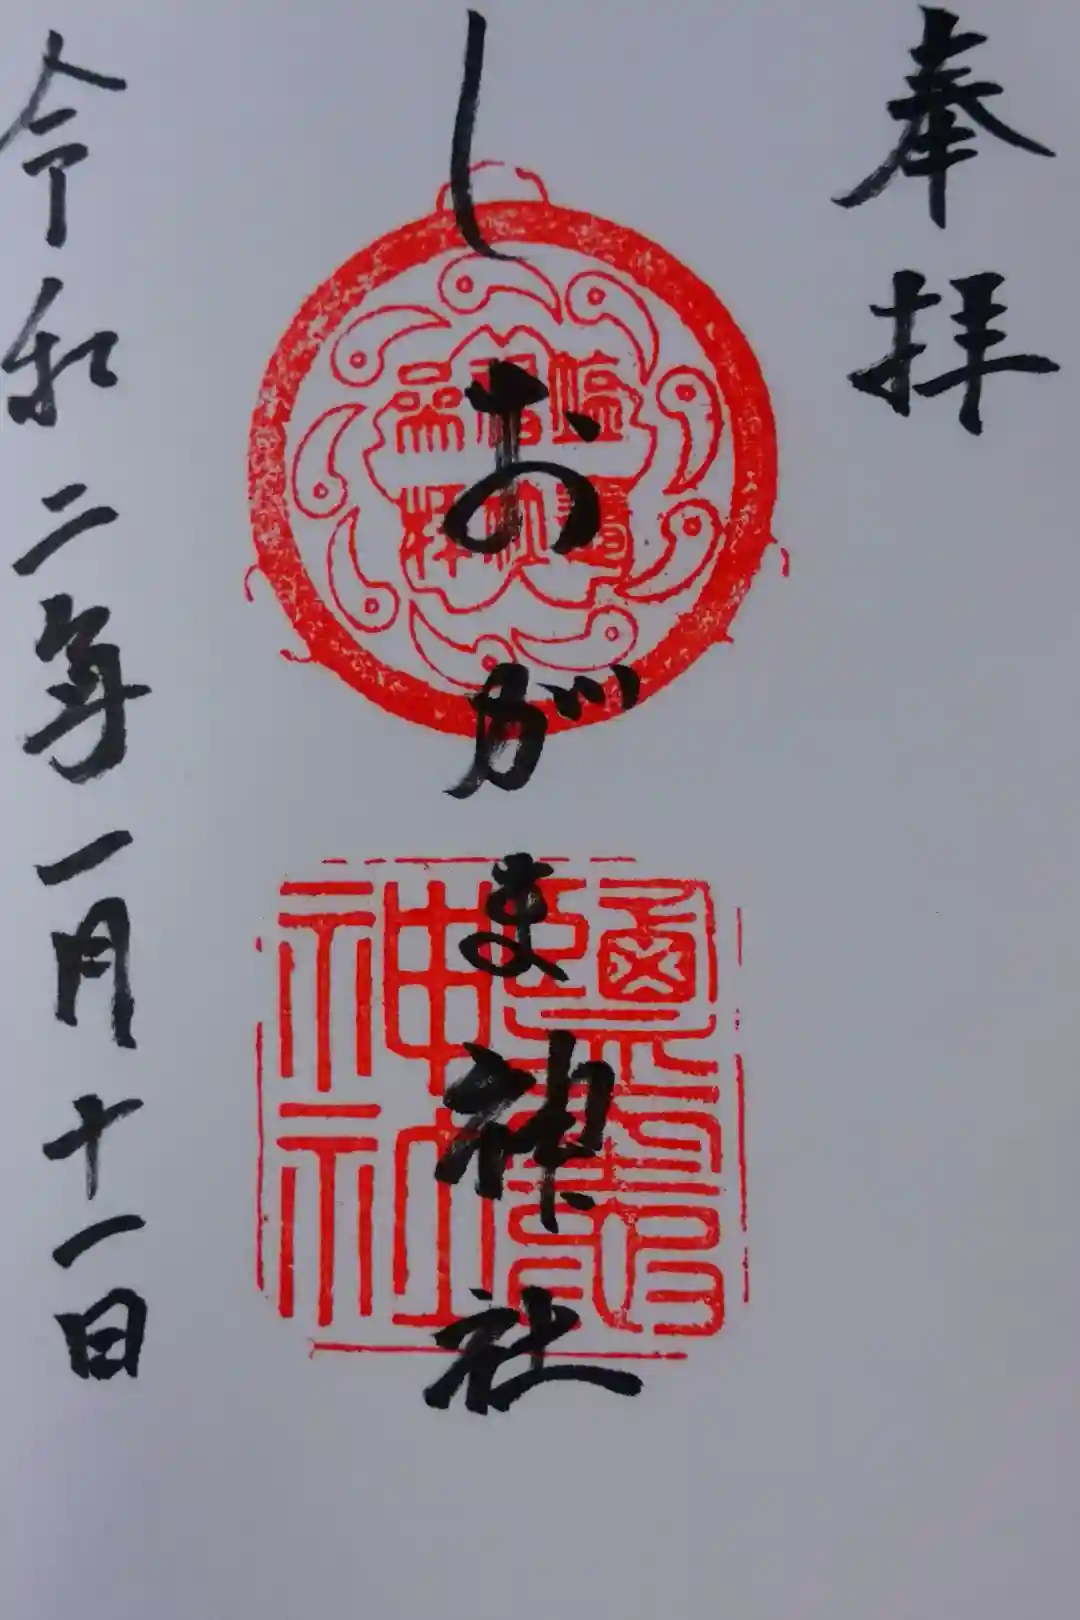 奉拝
しおがま神社
令和二年一月十一日
鹽竈神社